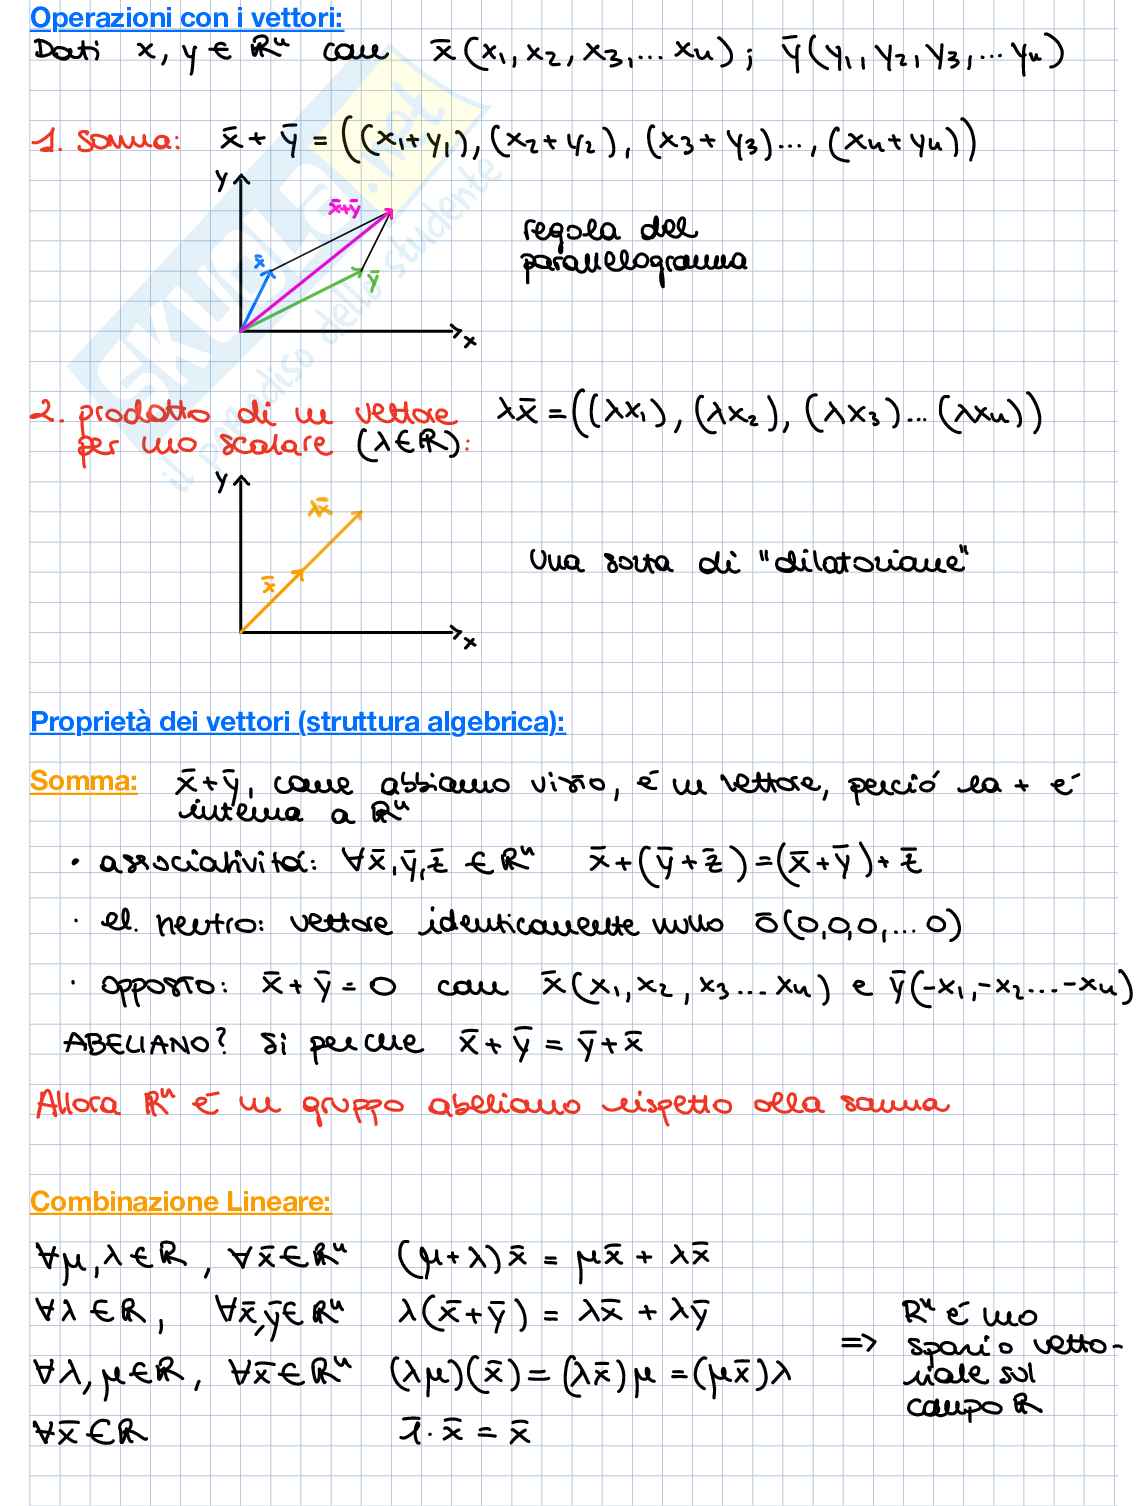 Operazioni con i vettori:
Dati x, y ∈ ℝⁿ con x̄(x₁, x₂, x₃, ... xₙ); ȳ(y₁, y₂, y₃, ... yₙ)
1. somma: x̄ + ȳ = ((x₁+y₁), (x₂+y₂), (x₃+y₃)..., (xₙ+yₙ))
y
x̄+ȳ
x̄
ȳ
x
regola del
parallelogramma
2. prodotto di un vettore
per uno scalare (λ∈ℝ):
λx̄ = ((λx₁), (λx₂), (λx₃)... (λxₙ))
y
λx̄
x̄
x
Una sorta di "dilatazione"
SKUOLA.net
il paradiso dello studente
Proprietà dei vettori (struttura algebrica):
Somma: x̄+ȳ, come abbiamo visto, é un vettore, perció la + é
interna a ℝⁿ
• associativitá: ∀x̄,ȳ,z̄ ∈ ℝⁿ x̄+(ȳ+z̄)=(x̄+ȳ)+z̄
• el. neutro: vettore identicamente nullo ō(0,0,0,... 0)
• opposto: x̄+ȳ=0 con x̄(x₁,x₂,x₃...xₙ) e ȳ(-x₁,-x₂...-xₙ)
ABELIANO? Si perche x̄+ȳ=ȳ+x̄
Allora ℝⁿ é un gruppo abeliano rispetto alla somma
Combinazione Lineare:
∀μ,λ∈ℝ, ∀x̄∈ℝⁿ (μ+λ)x̄ = μx̄ + λx̄
∀λ∈ℝ, ∀x̄,ȳ∈ℝⁿ λ(x̄+ȳ) = λx̄ + λȳ
∀λ,μ∈ℝ, ∀x̄∈ℝⁿ (λμ)(x̄)=(λx̄)μ=(μx̄)λ
∀x̄∈ℝ 1̄·x̄ = x̄
=> ℝⁿ é uno
spazio vetto-
riale sul
campo ℝ